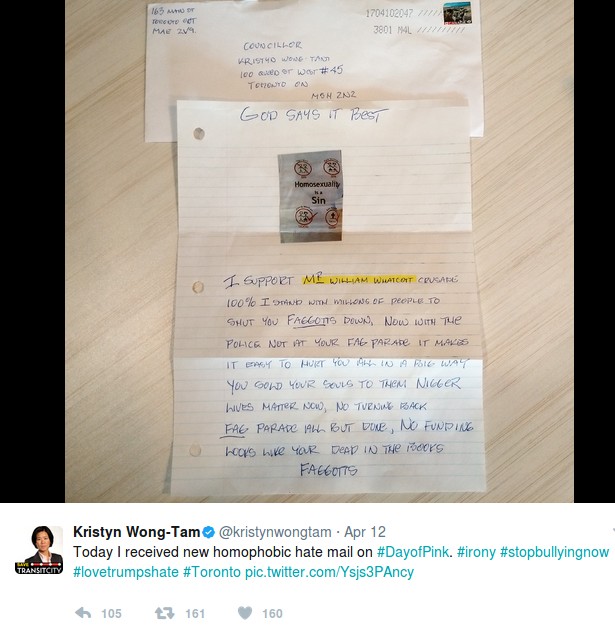 163 MAIN ST
TORONTO ONT
M4E 2V9
1704102047
3801 M4L
COUNCILLOR
KRISTYN WONG-TAM
100 QUEEN ST WEST #A5
TORONTO ON
M5H 2N2
GOD SAYS IT BEST
Homosexuality
is a
Sin
I SUPPORT MR WILLIAM WHATCOTT CRUSADE
100% I STAND WITH MILLIONS OF PEOPLE TO
SHUT YOU FAGGOTTS DOWN, NOW WITH THE
POLICE NOT AT YOUR FAG PARADE IT MAKES
IT EASY TO HURT YOU ALL IN A BIG WAY
YOU SOLD YOUR SOULS TO THEM NIGGER
LIVES MATTER NOW, NO TURNING BACK
FAG PARADE ALL BUT DONE, NO FUNDING
LOOKS LIKE YOUR DEAD IN THE BOOKS
FAGGOTTS
SAVE
TRANSITCITY
Kristyn Wong-Tam @kristynwongtam · Apr 12
Today I received new homophobic hate mail on #DayofPink. #irony #stopbullyingnow
#lovetrumpshate #Toronto pic.twitter.com/Ysjs3PAncy
105 161 160